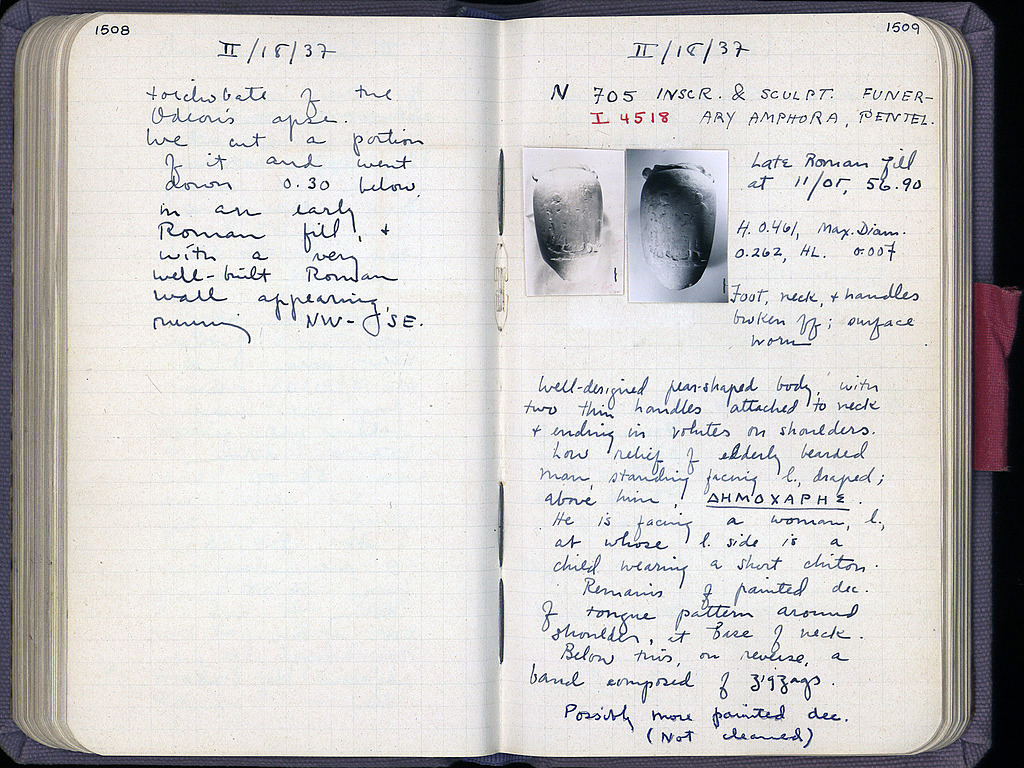 1508
II/18/37
toichobate of the
Odeion's apse.
We cut a portion
of it and went
down 0.30 below,
in an early
Roman fill, &
with a very
well-built Roman
wall appearing,
running NW-SE.
1509
II/18/37
N 705 INSCR. & SCULPT. FUNER-
I 4518 ARY AMPHORA, PENTEL.
Late Roman fill
at 11/ΟΓ, 56.90
H. 0.461, Max. Diam.
0.262, HL. 0.007
Foot, neck, & handles
broken off; surface
worn
Well-designed pear-shaped body, with
two thin handles attached to neck
& ending in volutes on shoulders.
Low relief of elderly bearded
man, standing facing l., draped;
above him, ΔΗΜΟΧΑΡΗΣ.
He is facing a woman, l.,
at whose l. side is a
child wearing a short chiton.
Remains of painted dec.
of tongue pattern around
shoulder, at base of neck.
Below this, on reverse, a
band composed of zigzags.
Possibly more painted dec.
(Not cleaned)